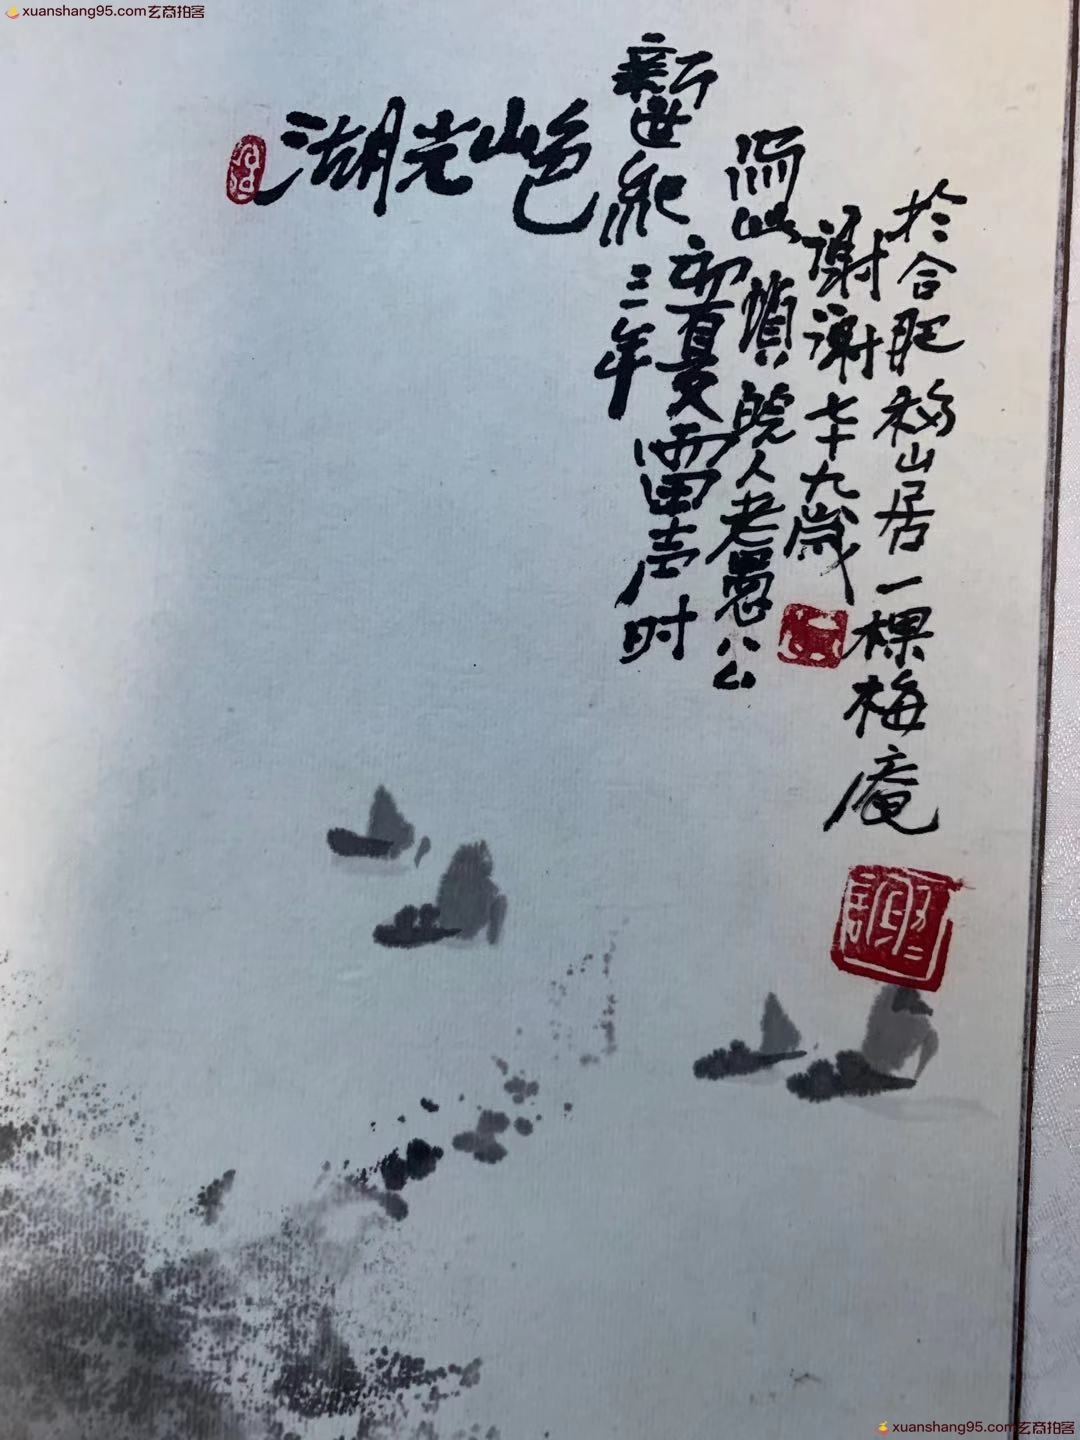 xuanshang95.com玄商拍客
湖光山色
新世纪三年
初夏雷声时
皖人老愚公
谢谢七十九岁
於合肥稻山居一棵梅庵
謝
xuanshang95.com玄商拍客